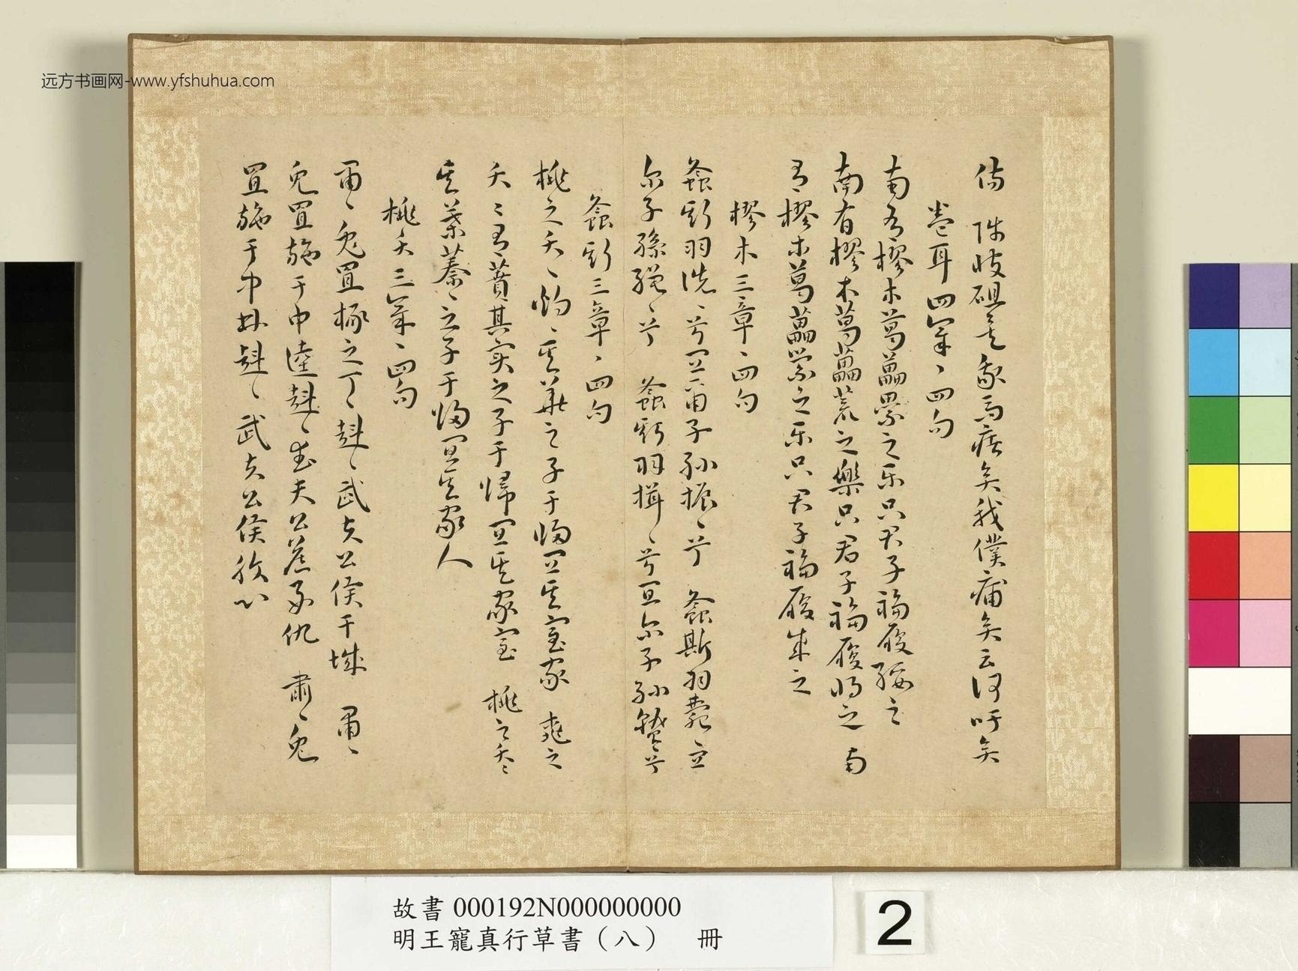 远方书画网-www.yfshuhua.com
傷 陟彼砠矣我馬瘏矣我僕痡矣云何吁矣
卷耳四章章四句
南有樛木葛藟纍之乐只君子福履綏之
南有樛木葛藟荒之樂只君子福履将之 南
有樛木葛藟縈之乐只君子福履成之
樛木三章々四句
螽斯羽詵々兮宜爾子孫振々兮 螽斯羽薨々宜
尔子孫繩々兮 螽斯羽揖々兮宜尔子孫蟄々兮
螽斯三章々四句
桃之夭々灼々其華之子于歸宜其室家 桃之
夭々有蕡其实之子于歸宜其家室 桃之夭々
其葉蓁々之子于歸宜其家人
桃夭三章々四句
肅々兔罝椓之丁々赳々武夫公侯干城 肅々
兔罝施于中逵赳々武夫公侯好仇 肅々兔
罝施于中林赳々武夫公侯腹心
故書 000192N000000000
明王寵真行草書（八） 冊
2